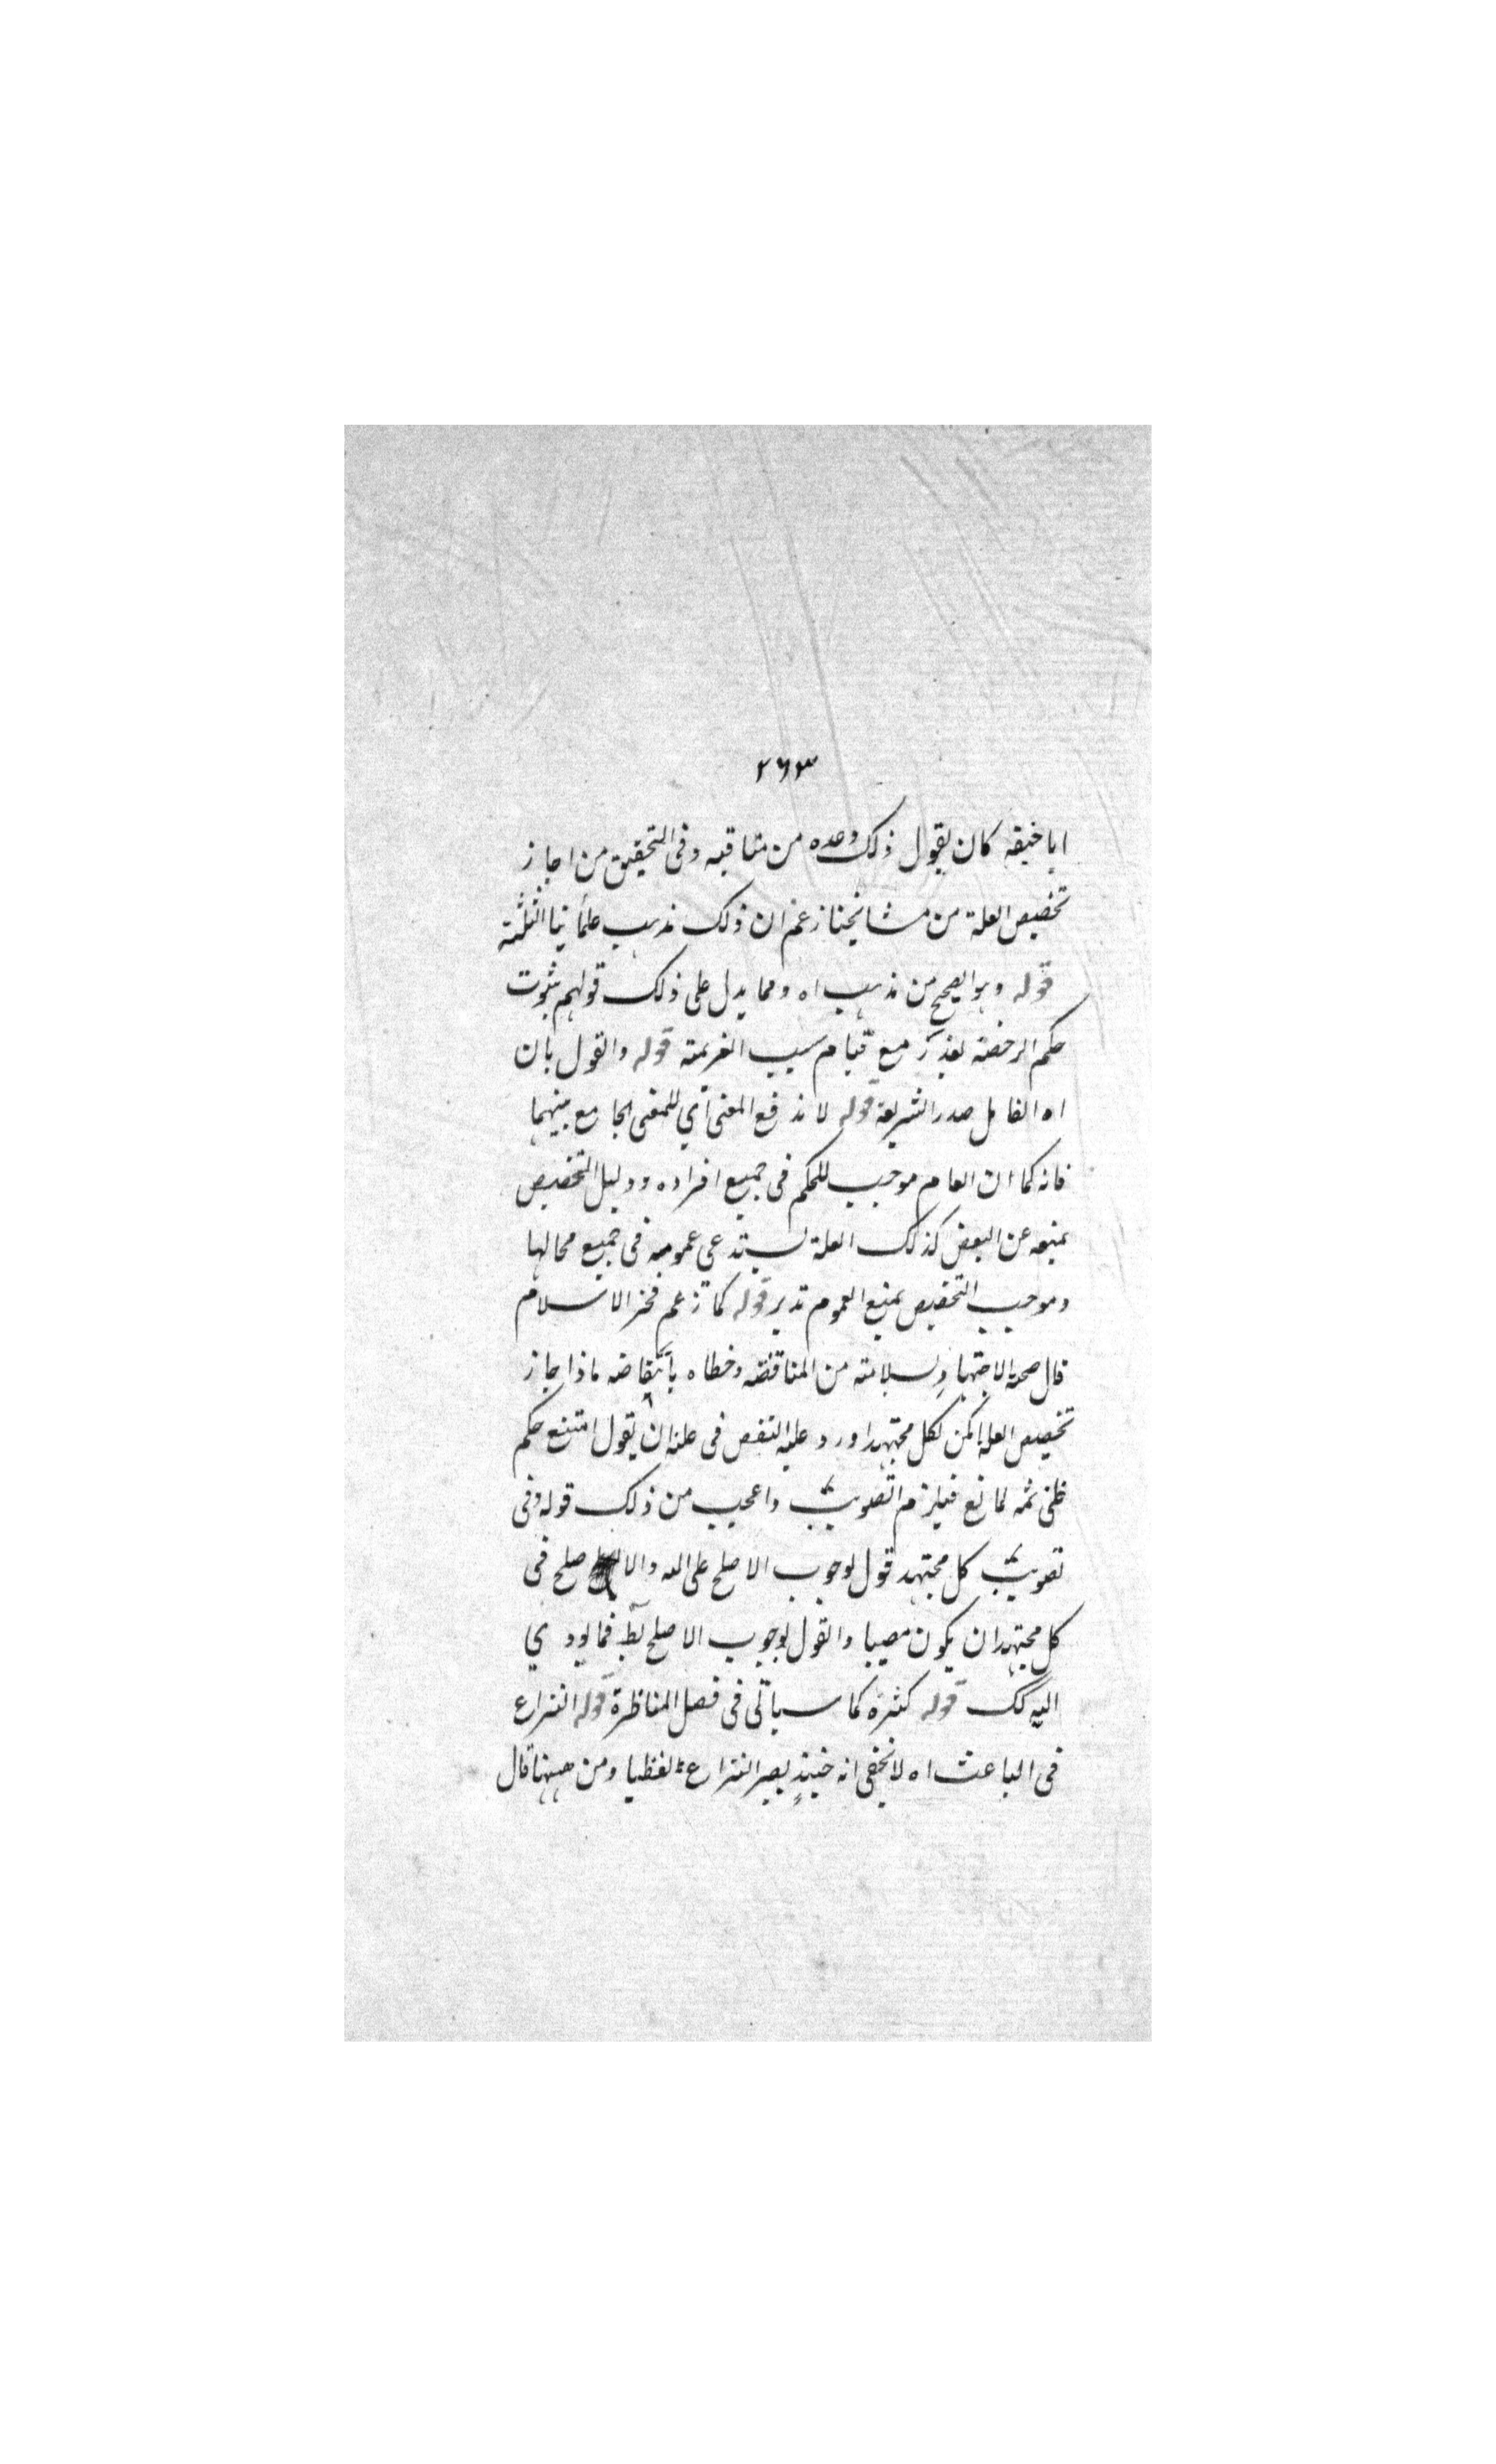 ٢٦٣
ابا حنيفة كان يقول ذلك وعده من مناقبه وفى التحقيق من اجاز
تخصيص العلة من مشايخنا زعم ان ذلك مذهب علمائنا الثلثة
قوله وهو الصحيح من مذهب اه ومما يدل على ذلك قولهم بثبوت
حكم الرخصة بعذر مع قيام سبب العزيمة قوله والقول بان
اه القايل صدر الشريعة قوله لا ندفع المعنى اي للمعنى الجامع بينهما
فانه كما ان العام موجب للحكم فى جميع افراده ودليل التخصيص
يمنعه عن البعض كذلك العلة يستدعى عمومه فى جميع محالها
وموجب التخصيص يمنع العموم تدبر قوله كما زعم فخر الاسلام
قال صحة الاجتهاد بسلامته من المناقضة وخطاه بانتقاضه فاذا جاز
تخصيص العلة امكن لكل مجتهد اورد عليه النقض فى علته ان يقول امتنع حكم
ظنى ثمه لمانع فيلزم التصويب واعجب من ذلك قوله وفى
تصويب كل مجتهد قول لوجوب الاصلح على الله والاصلح فى
كل مجتهد ان يكون مصيبا والقول لوجوب الاصلح بط فما يودي
اليه كك قوله كثرة كما سياتى فى فصل المناظرة قوله النزاع
فى الباعث اه لا يخفى انه حينئذ يصير النزاع لفظيا ومن ههنا قال